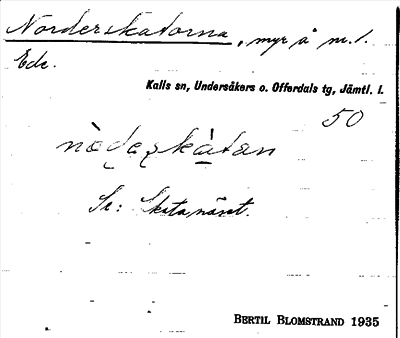 Norderskatorna, myr å nr. 1.
Ede.
Kalls sn, Undersåkers o. Offerdals tg, Jämtl. l.
50
nò̀derskàtan
Se: Skatanäset.
BERTIL BLOMSTRAND 1935